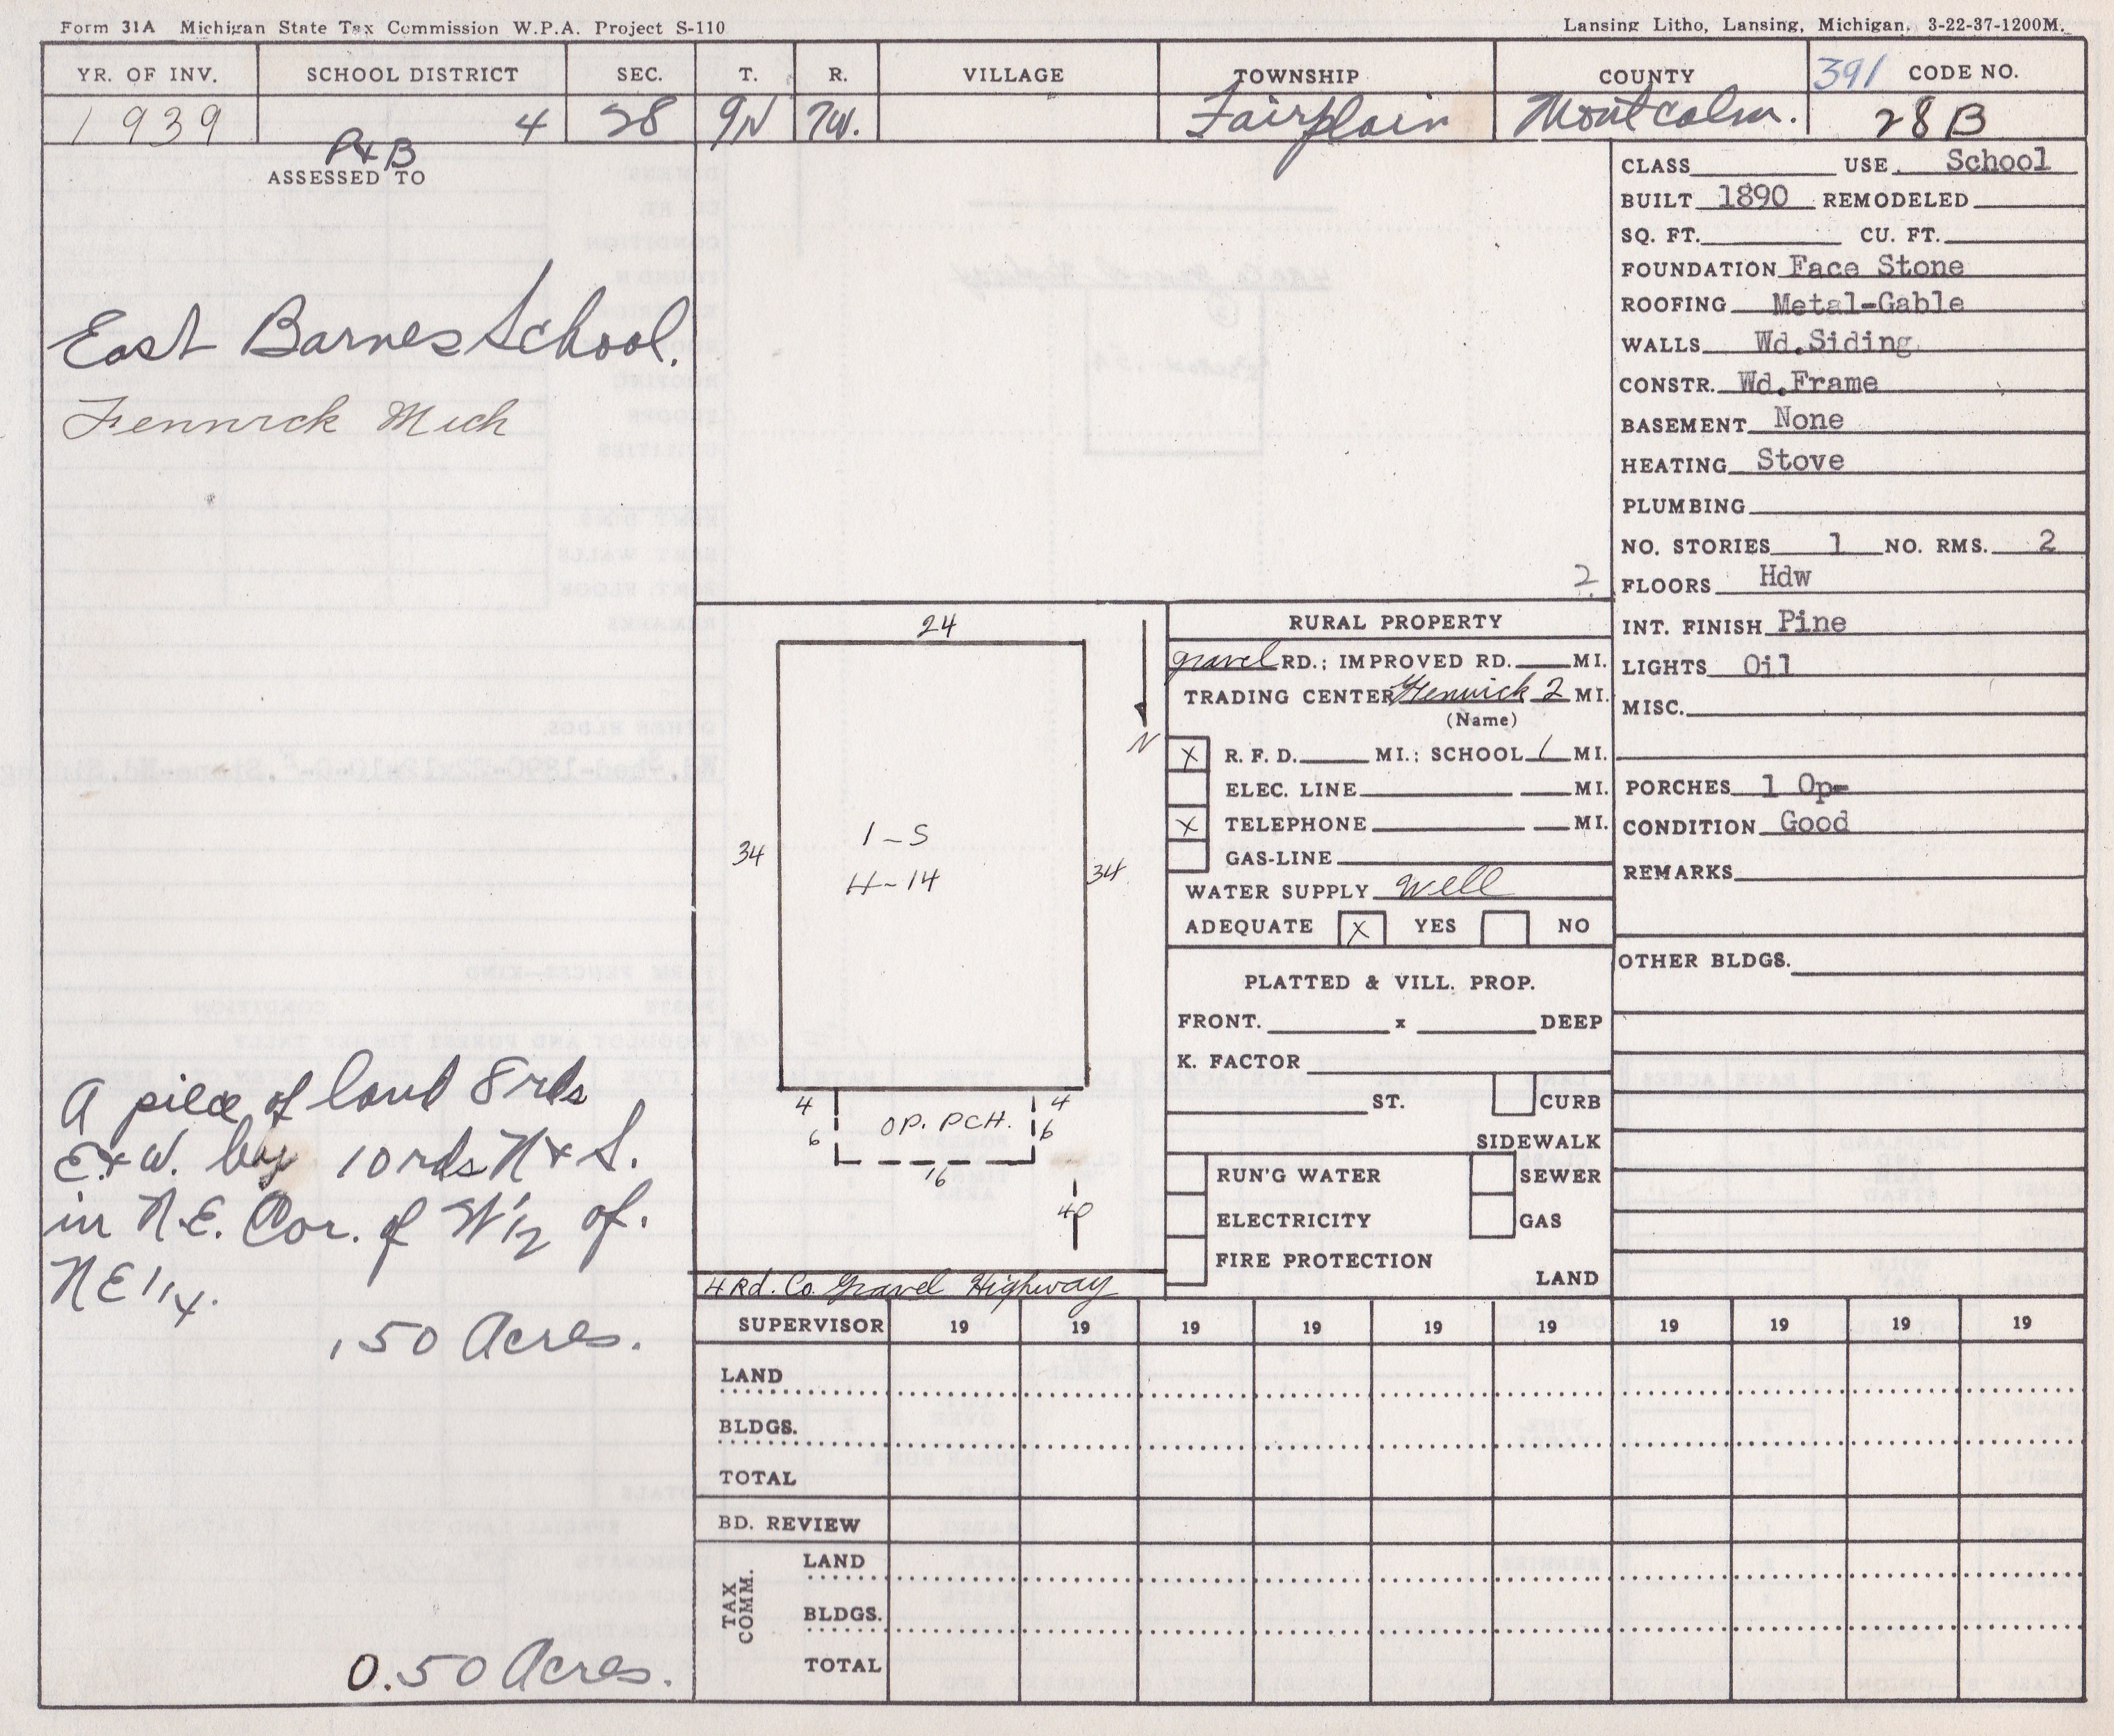 Form 31A Michigan State Tax Commission W.P.A. Project S-110
Lansing Litho, Lansing, Michigan, 3-22-37-1200M.
YR. OF INV. SCHOOL DISTRICT SEC. T. R. VILLAGE TOWNSHIP COUNTY 391 CODE NO.
1939 4 28 9N 7W. Fairplain Montcalm. 28B
P+B
ASSESSED TO
East Barnes School.
Fennick Mich
A piece of land 8 rds
E+W. by 10 rds N+S.
in N.E. Cor. of W 1/2 of.
NE 1/4.
.50 Acres.
0.50 Acres.
24
34
34
1-S
H-14
N
4
4
6
6
OP. PCH.
16
40
4 Rd. Co. Gravel Highway
2
RURAL PROPERTY
gravel RD.; IMPROVED RD. MI.
TRADING CENTER Fenwick 2 MI.
(Name)
X R. F. D. MI.; SCHOOL 1 MI.
ELEC. LINE MI.
X TELEPHONE MI.
GAS-LINE
WATER SUPPLY Well
ADEQUATE X YES NO
PLATTED & VILL. PROP.
FRONT. x DEEP
K. FACTOR
ST. CURB
SIDEWALK
RUN'G WATER SEWER
ELECTRICITY GAS
FIRE PROTECTION
LAND
CLASS USE School
BUILT 1890 REMODELED
SQ. FT. CU. FT.
FOUNDATION Face Stone
ROOFING Metal-Gable
WALLS Wd.Siding
CONSTR. Wd.Frame
BASEMENT None
HEATING Stove
PLUMBING
NO. STORIES 1 NO. RMS. 2
FLOORS Hdw
INT. FINISH Pine
LIGHTS Oil
MISC.
PORCHES 1 Op-
CONDITION Good
REMARKS
OTHER BLDGS.
SUPERVISOR 19 19 19 19 19 19 19 19 19 19
LAND
BLDGS.
TOTAL
BD. REVIEW
TAX COMM.
LAND
BLDGS.
TOTAL